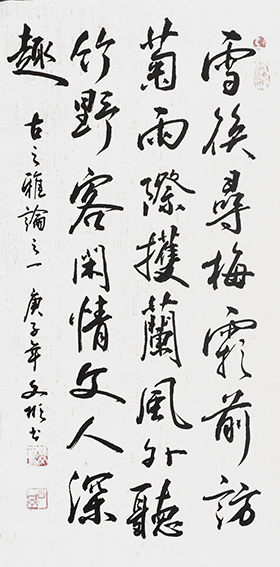 雪後尋梅霜前訪
菊雨際護蘭風外聽
竹野客閑情文人深
趣
古之雅論之一 庚子年文書